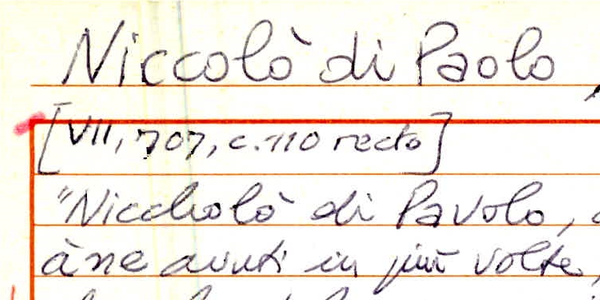 Niccolò di Paolo,
[VII, 707, c. 110 recto]
"Niccholò di Pavolo,
àne avuti in più volte,